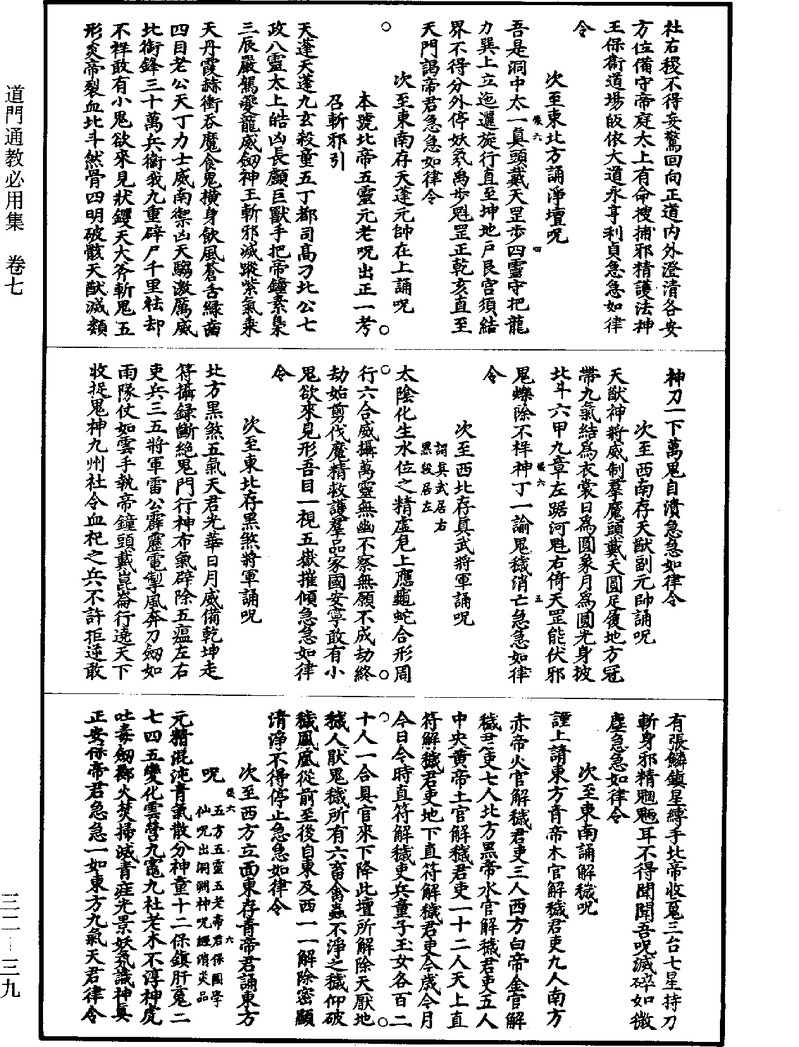 道門通教必用集 卷七
三二—三九
社右稷不得妄驚回向正道內外澄清各安
方位備守帝庭太上有命搜捕邪精護法神
王保衛道場皈依大道永亨利貞急急如律
令
次至東北方誦淨壇呪
吾是洞中太一真頭戴天罡步四靈守把龍
力巽上立迤邐旋行直至坤地戶艮宮須結
界不得分外停妖氛禹步魁罡正乾亥直至
天門謁帝君急急如律令
次至東南存天蓬元帥在上誦呪
本號北帝五靈元老呪出正一考
召斬邪引
天蓬天蓬九玄殺童五丁都司高刁北公七
政八靈太上皓凶長顱巨獸手把帝鐘素梟
三辰嚴駕夔龍威劒神王斬邪滅蹤紫氣乘
天丹霞赫衝吞魔食鬼橫身飲風蒼舌綠齒
四目老公天丁力士威南禦凶天騶激厲威
北銜鋒三十萬兵衛我九重辟尸千里袪却
不祥敢有小鬼欲來見狀钁天大斧斬鬼五
形炎帝裂血北斗然骨四明破骸天猷滅類
神刀一下萬鬼自潰急急如律令
次至西南存天猷副元帥誦呪
天猷神將威制羣魔頭戴天圓足履地方冠
帶九氣結為衣裳日為圓象月為圓光身披
北斗六甲九章左踞河魁右倚天罡能伏邪
鬼蠑除不祥神丁一諭鬼穢消亡急急如律
令
次至西北存真武將軍誦呪
謂真武居右
黑殺居左
太陰化生水位之精虛危上應龜蛇合形周
行六合威攝萬靈無幽不察無願不成劫終
劫始剪伐魔精救護羣品家國安寧敢有小
鬼欲來見形吾目一視五嶽摧傾急急如律
令
次至東北存黑煞將軍誦呪
北方黑煞五氣天君光華日月威備乾坤走
符攝錄斷絕鬼門行神布氣辟除五瘟左右
吏兵三五將軍雷公霹靂電掣風奔刀劒如
雨隊仗如雲手執帝鐘頭戴崑崙行遶天下
收捉鬼神九州社令血祀之兵不許拒逆敢
有張鱗鎮星縛手北帝收冤三台七星持刀
斬身邪精魍魎耳不得聞聞吾呪滅碎如微
塵急急如律令
次至東南誦解穢呪
謹上請東方青帝木官解穢君吏九人南方
赤帝火官解穢君吏三人西方白帝金官解
穢君吏七人北方黑帝水官解穢君吏五人
中央黃帝土官解穢君吏一十二人天上直
符解穢君吏地下直符解穢君吏今歲今月
今日今時直符解穢吏兵童子玉女各百二
十人一合具官來下降此壇所解除天厭地
穢人厭鬼穢所有六畜禽蟲不淨之穢仰破
穢鳳凰從前至後自東及西一一解除密顯
清淨不得停止急急如律令
次至西方立面東存青帝君誦東方
呪
五方五靈五老帝君保國學
仙呪出洞淵神呪經消災品
元精混沌青氣散分神童十二保鎮肝䰟二
七四五變化雲營九竈九社老木不淳神虎
吐毒劒鄰火焚掃滅青疰光景妖氛讖神真
正安保帝君急急一如東方九氣天君律令